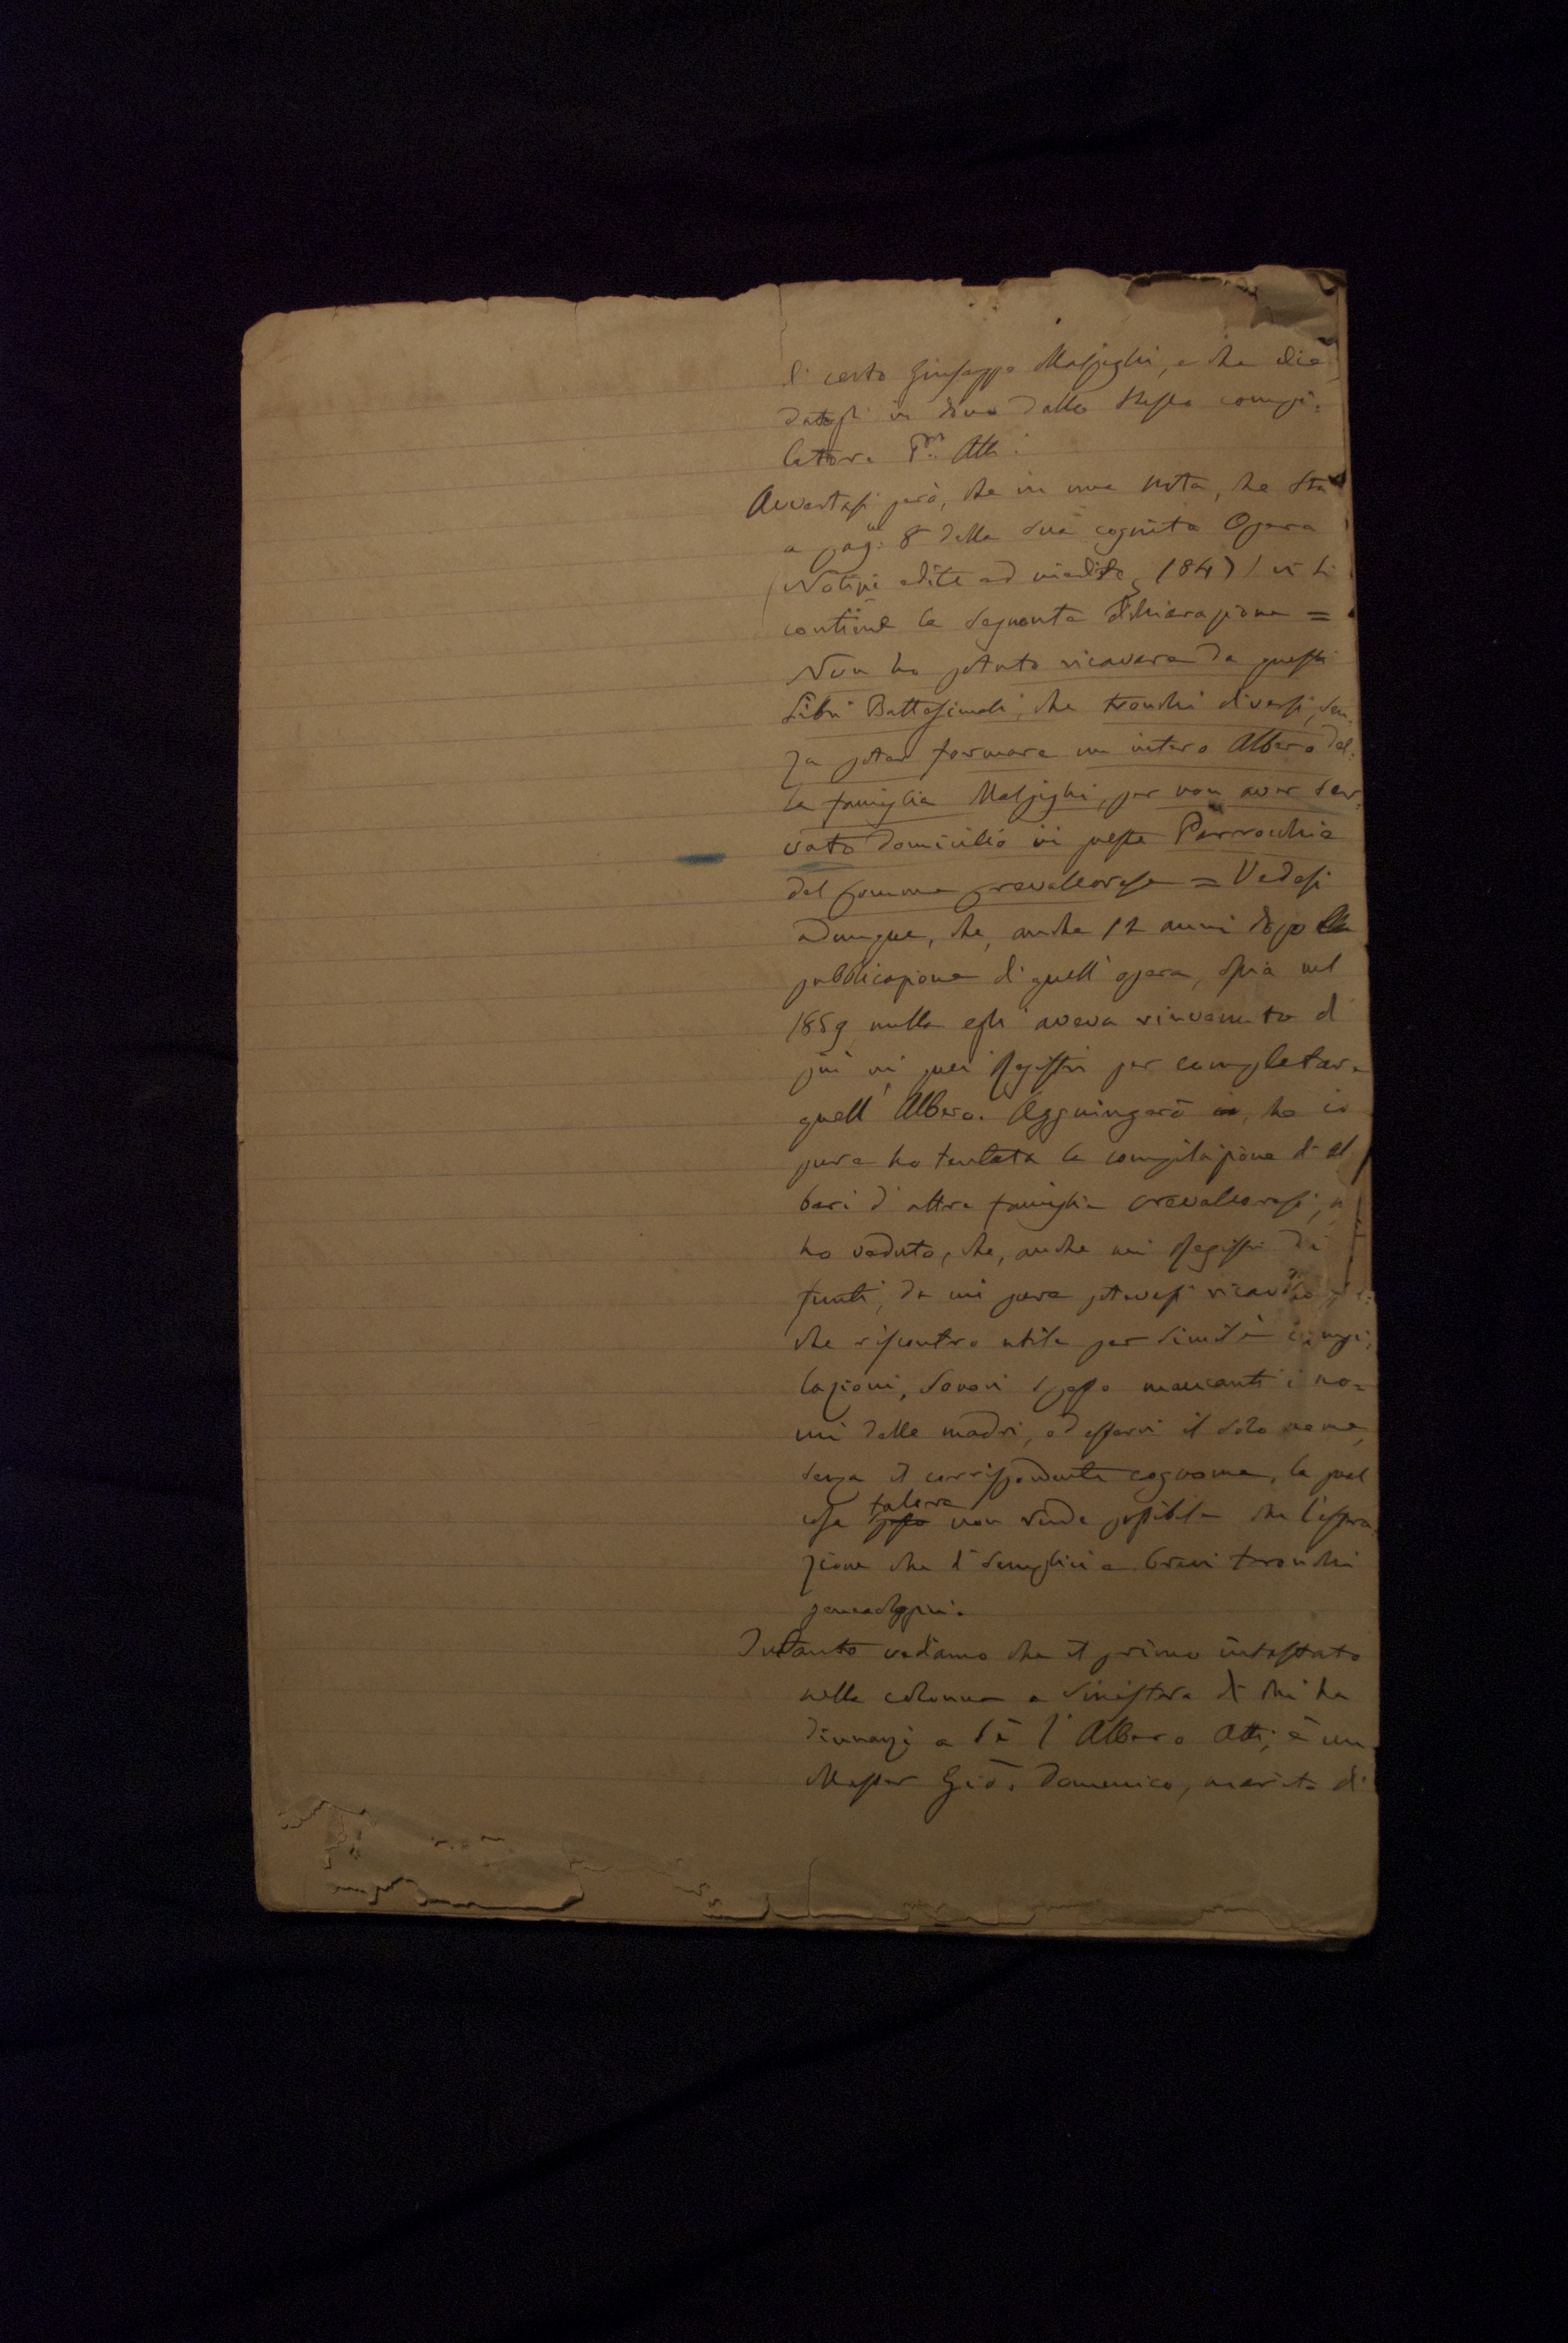 di certo Giuseppe Malpighi, e che die
datogli in dono dallo stesso compi=
latore P.r Atti.
Avvertasi però, che in una nota, che sta
a pag: 8 della sua cognita Opera
(Notizie edite ed inedite, 1847) vi si
contiene la seguente dichiarazione =
Non ho potuto ricavare da questi
Libri Battesimali, che tronchi diversi, sen.
za poter formare un intero Albero del=
la famiglia Malpighi, per non aver ser=
vato domicilio in questa Parrocchia
del comune crevalcorese = Vedesi
adunque, che, anche 12 anni dopo la
pubblicazione di quell'opera, ossia nel
1859 nulla egli aveva rinvenuto di
più in quei Registri per completare
quell'Albero. Aggiungerò, che io
pure ho tentata la compilazione di al
beri d'altre famiglie crevalcoresi, e
ho veduto, che, anche nei Registri De
funti, da cui pure potevasi ricavare
che riscontro utile per simili compi=
lazioni, sonovi spesso mancanti i no=
mi delle madri, od esservi il solo nome,
senza il corrispondente cognome, la qual
cosa talora non rende possibile che
zione che di semplici e brevi tronchi
genealogici.
Intanto vediamo che il primo intestato
nella colonna a sinistra di chi ha
dinnanzi a sè l'Albero Atti, è un
Messer Giō. Domenico, marito di